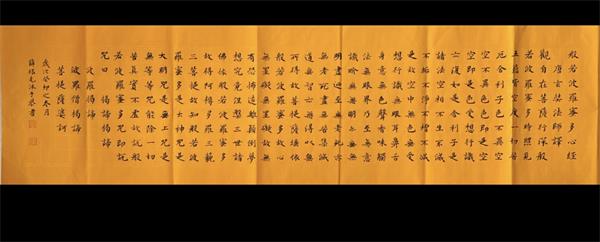 般若波羅蜜多心經
唐玄奘法師譯
觀自在菩薩行深般
若波羅蜜多時照見
五蘊皆空度一切苦
厄舍利子色不異空
空不異色色即是空
空即是色受想行識
亦復如是舍利子是
諸法空相不生不滅
不垢不淨不增不減
是故空中無色無受
想行識無眼耳鼻舌
身意無色聲香味觸
法無眼界乃至無意
識界無無明亦無無
明盡乃至無老死亦
無老死盡無苦集滅
道無智亦無得以無
所得故菩提薩埵依
般若波羅蜜多故心
無罣礙無罣礙故無
有恐怖遠離顛倒夢
想究竟涅槃三世諸
佛依般若波羅蜜多
故得阿耨多羅三藐
三菩提故知般若波
羅蜜多是大神咒是
大明咒是無上咒是
無等等咒能除一切
苦真實不虛故說般
若波羅蜜多咒即說
咒曰 揭諦揭諦
波羅揭諦
波羅僧揭諦
菩提薩婆訶
歲次癸卯之春月
沐手恭書